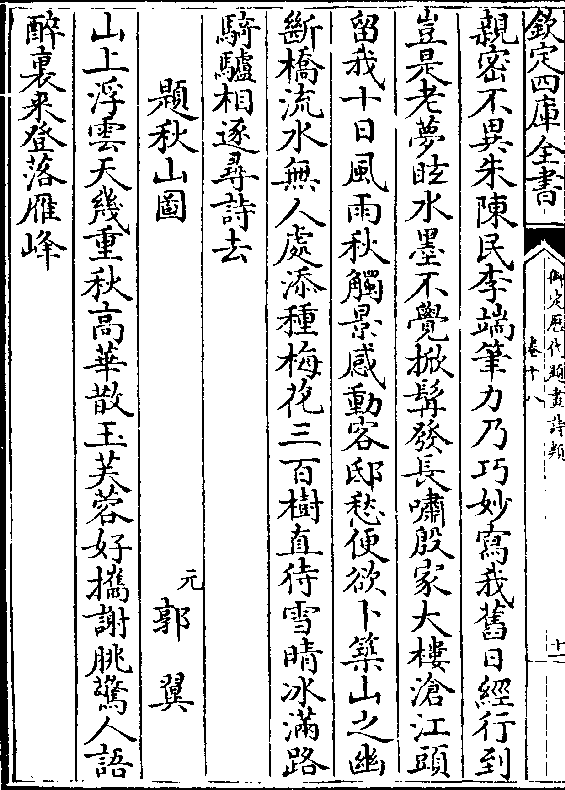 欽定四庫全書
御定歷代題畫詩類
卷十八
十一
親密不異朱陳民李端筆力乃巧妙寫我舊日經行到
豈是老夢眩水墨不覺掀髯發長嘯殷家大樓滄江頭
留我十日風雨秋觸景感動客邸愁便欲卜築山之幽
斷橋流水無人處添種梅花三百樹直待雪晴冰滿路
騎驢相逐尋詩去
題秋山圖
元 郭翼
山上浮雲天幾重秋高華散玉芙蓉好攜謝朓驚人語
醉裏來登落雁峰